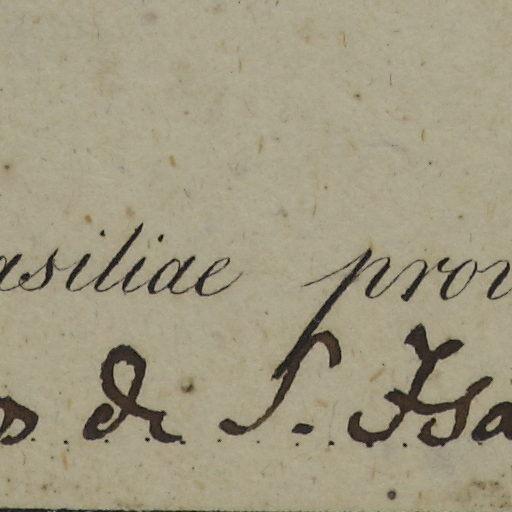 asiliae prov
os de S. Isa